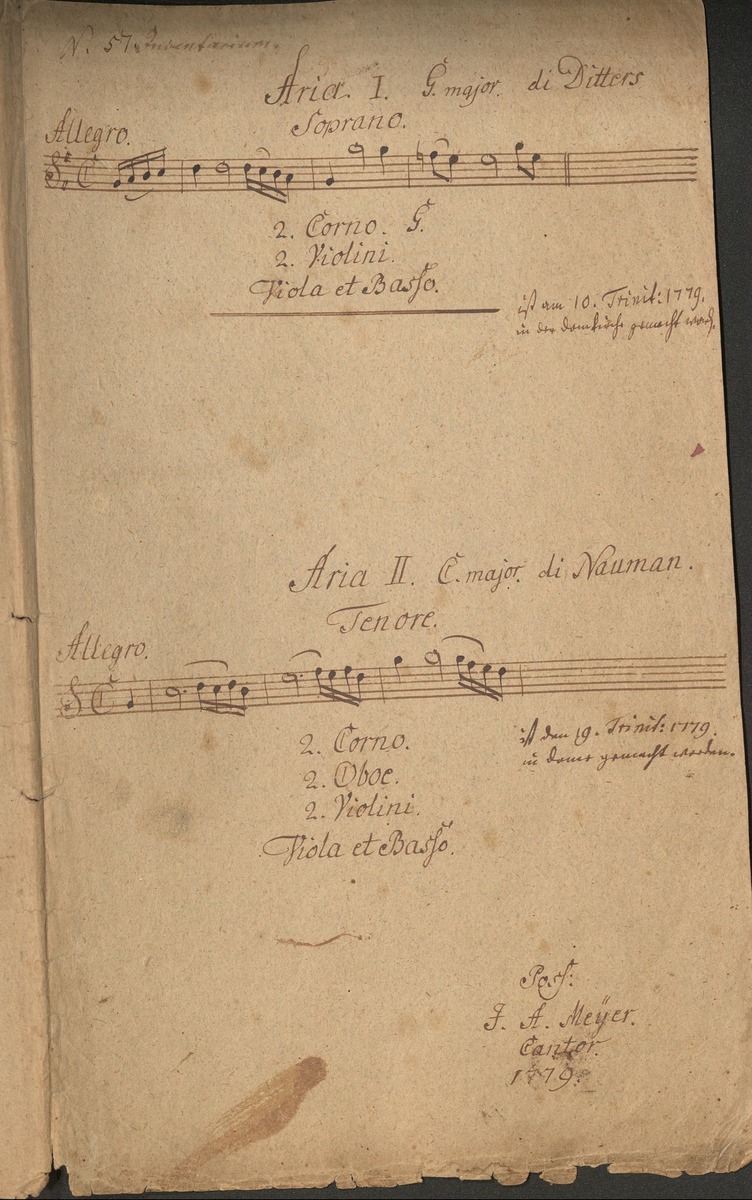 N. 57. Inventarium.
Aria. I. G. major. di Ditters
Soprano.
Allegro.
2. Corno. G.
2. Violini.
Viola et Basso.
ist am 10. Trinit: 1779.
in der domkirche gemacht word.
Aria II. C. major. di Nauman.
Tenore.
Allegro.
2. Corno.
2. Oboe.
2. Violini.
Viola et Basso.
ist den 19. Trinit: 1779.
in dome gemacht worden.
Poss:
J. A. Meÿer.
Cantor.
1779.